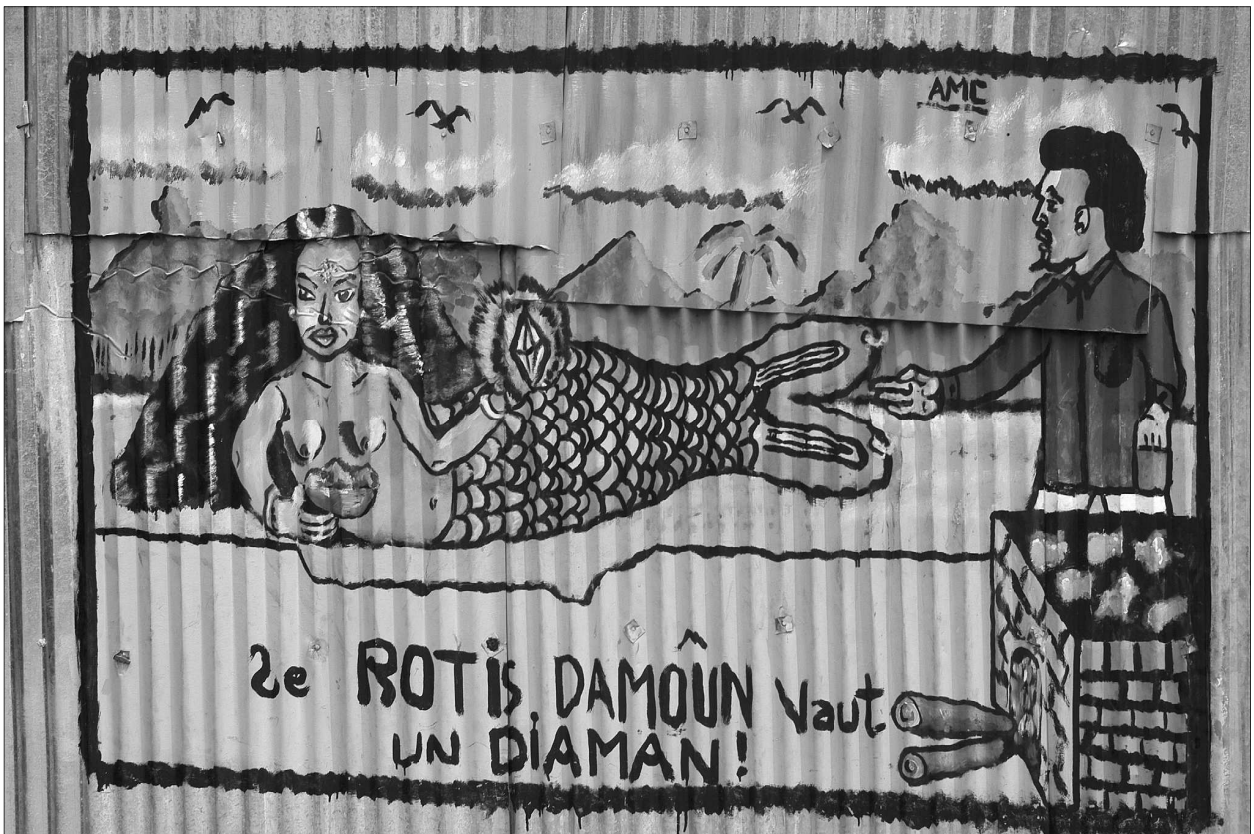 AMC
2e ROTiS DAMOÛN Vaut
UN DiAMAN!